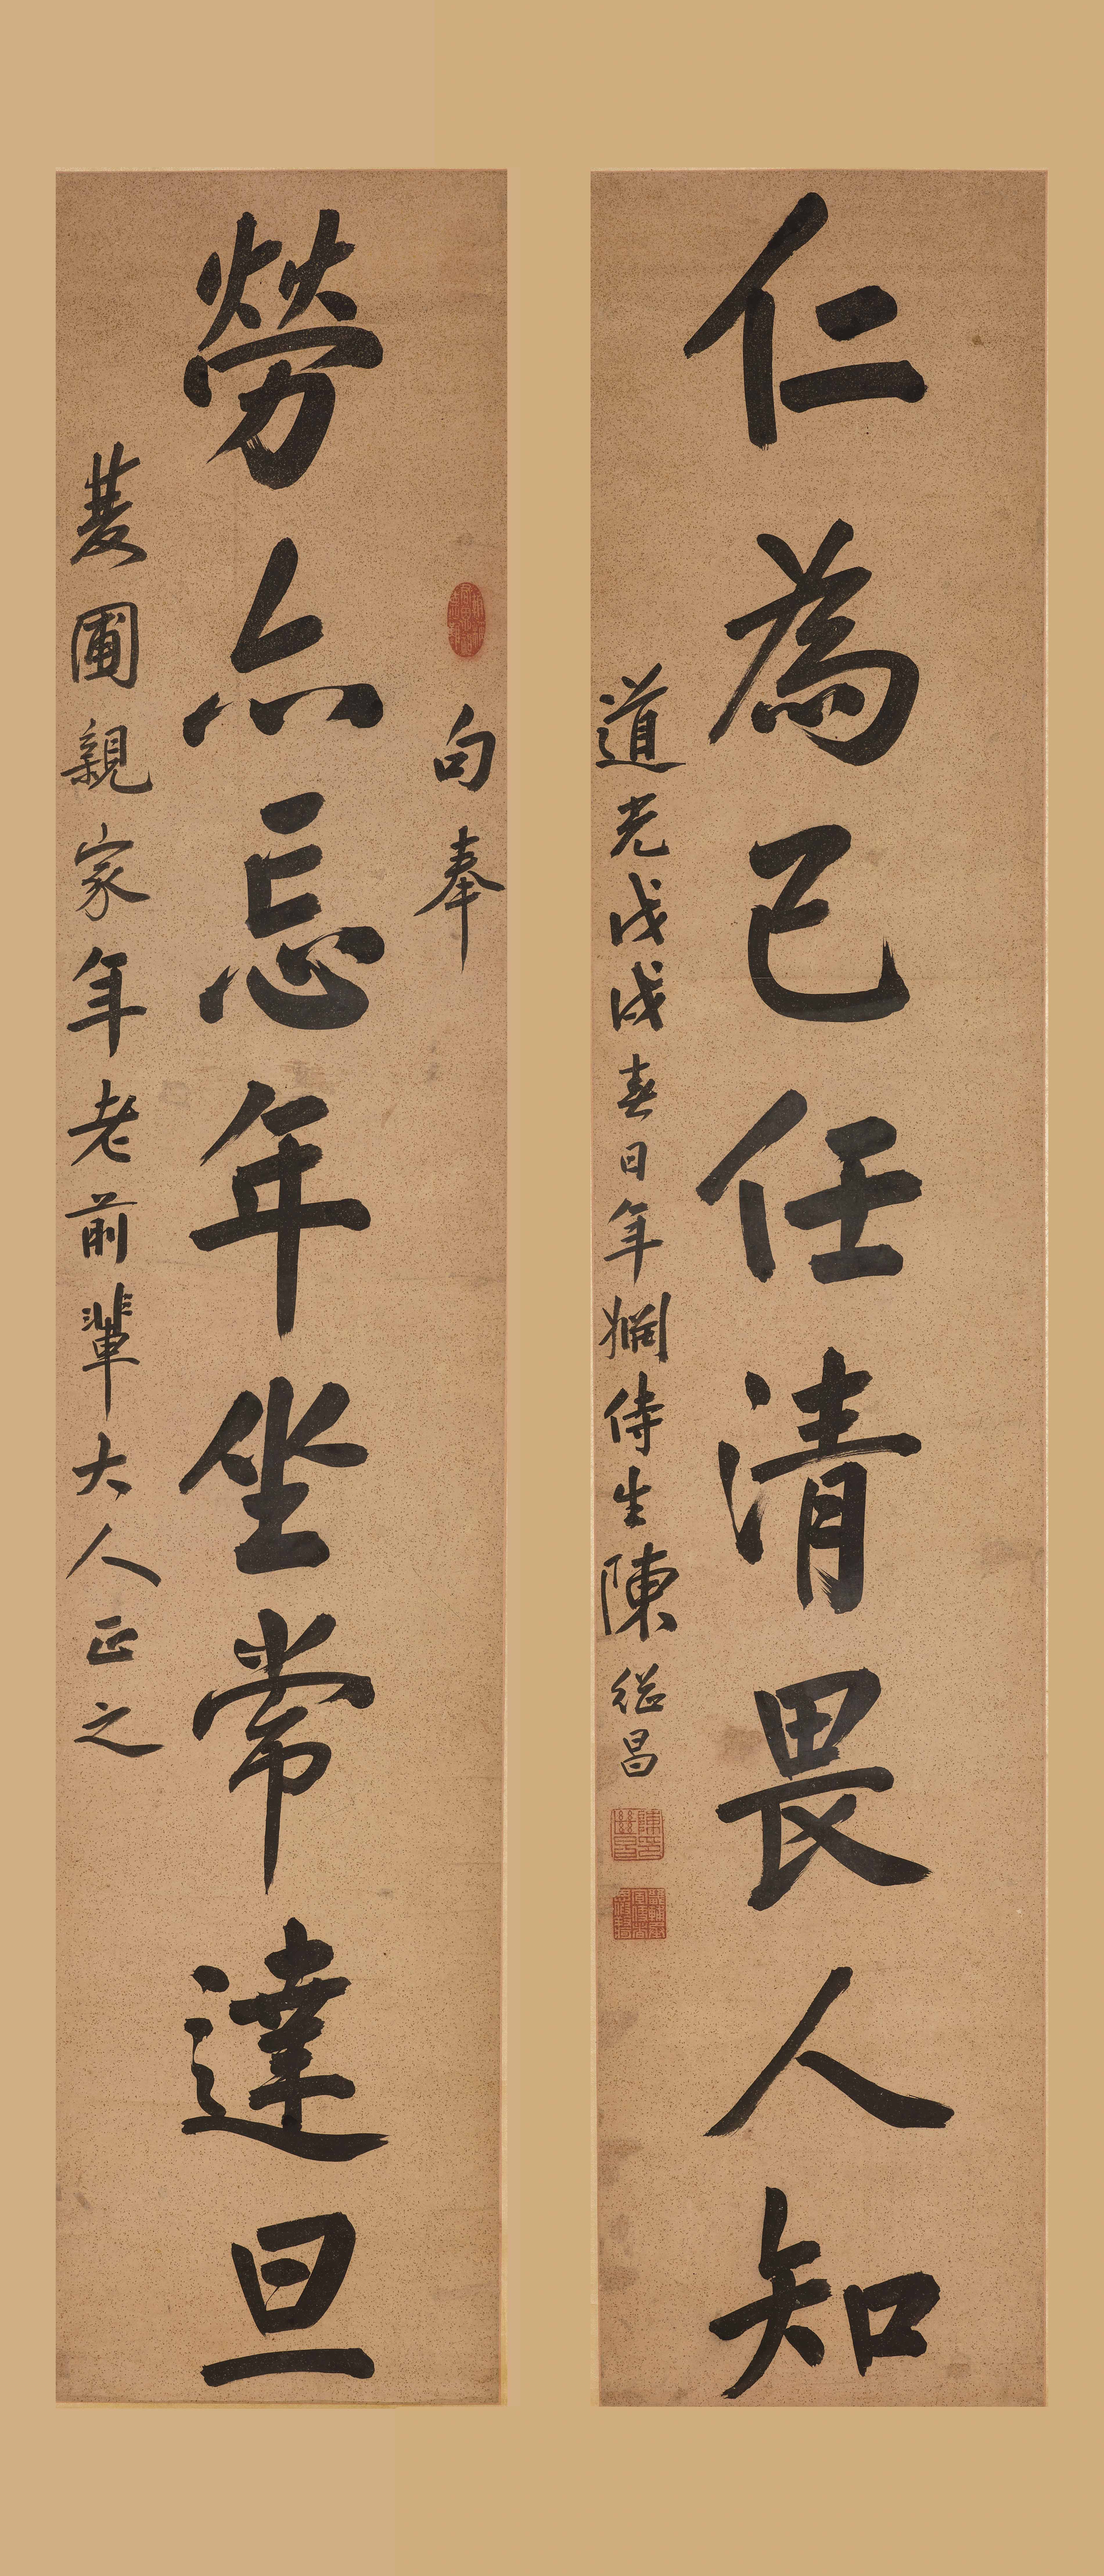 仁為己任清畏人知
道光戊戌春日年姻侍生陳繼昌
句奉
勞亦忘年坐常達旦
菱圃親家年老前輩大人正之